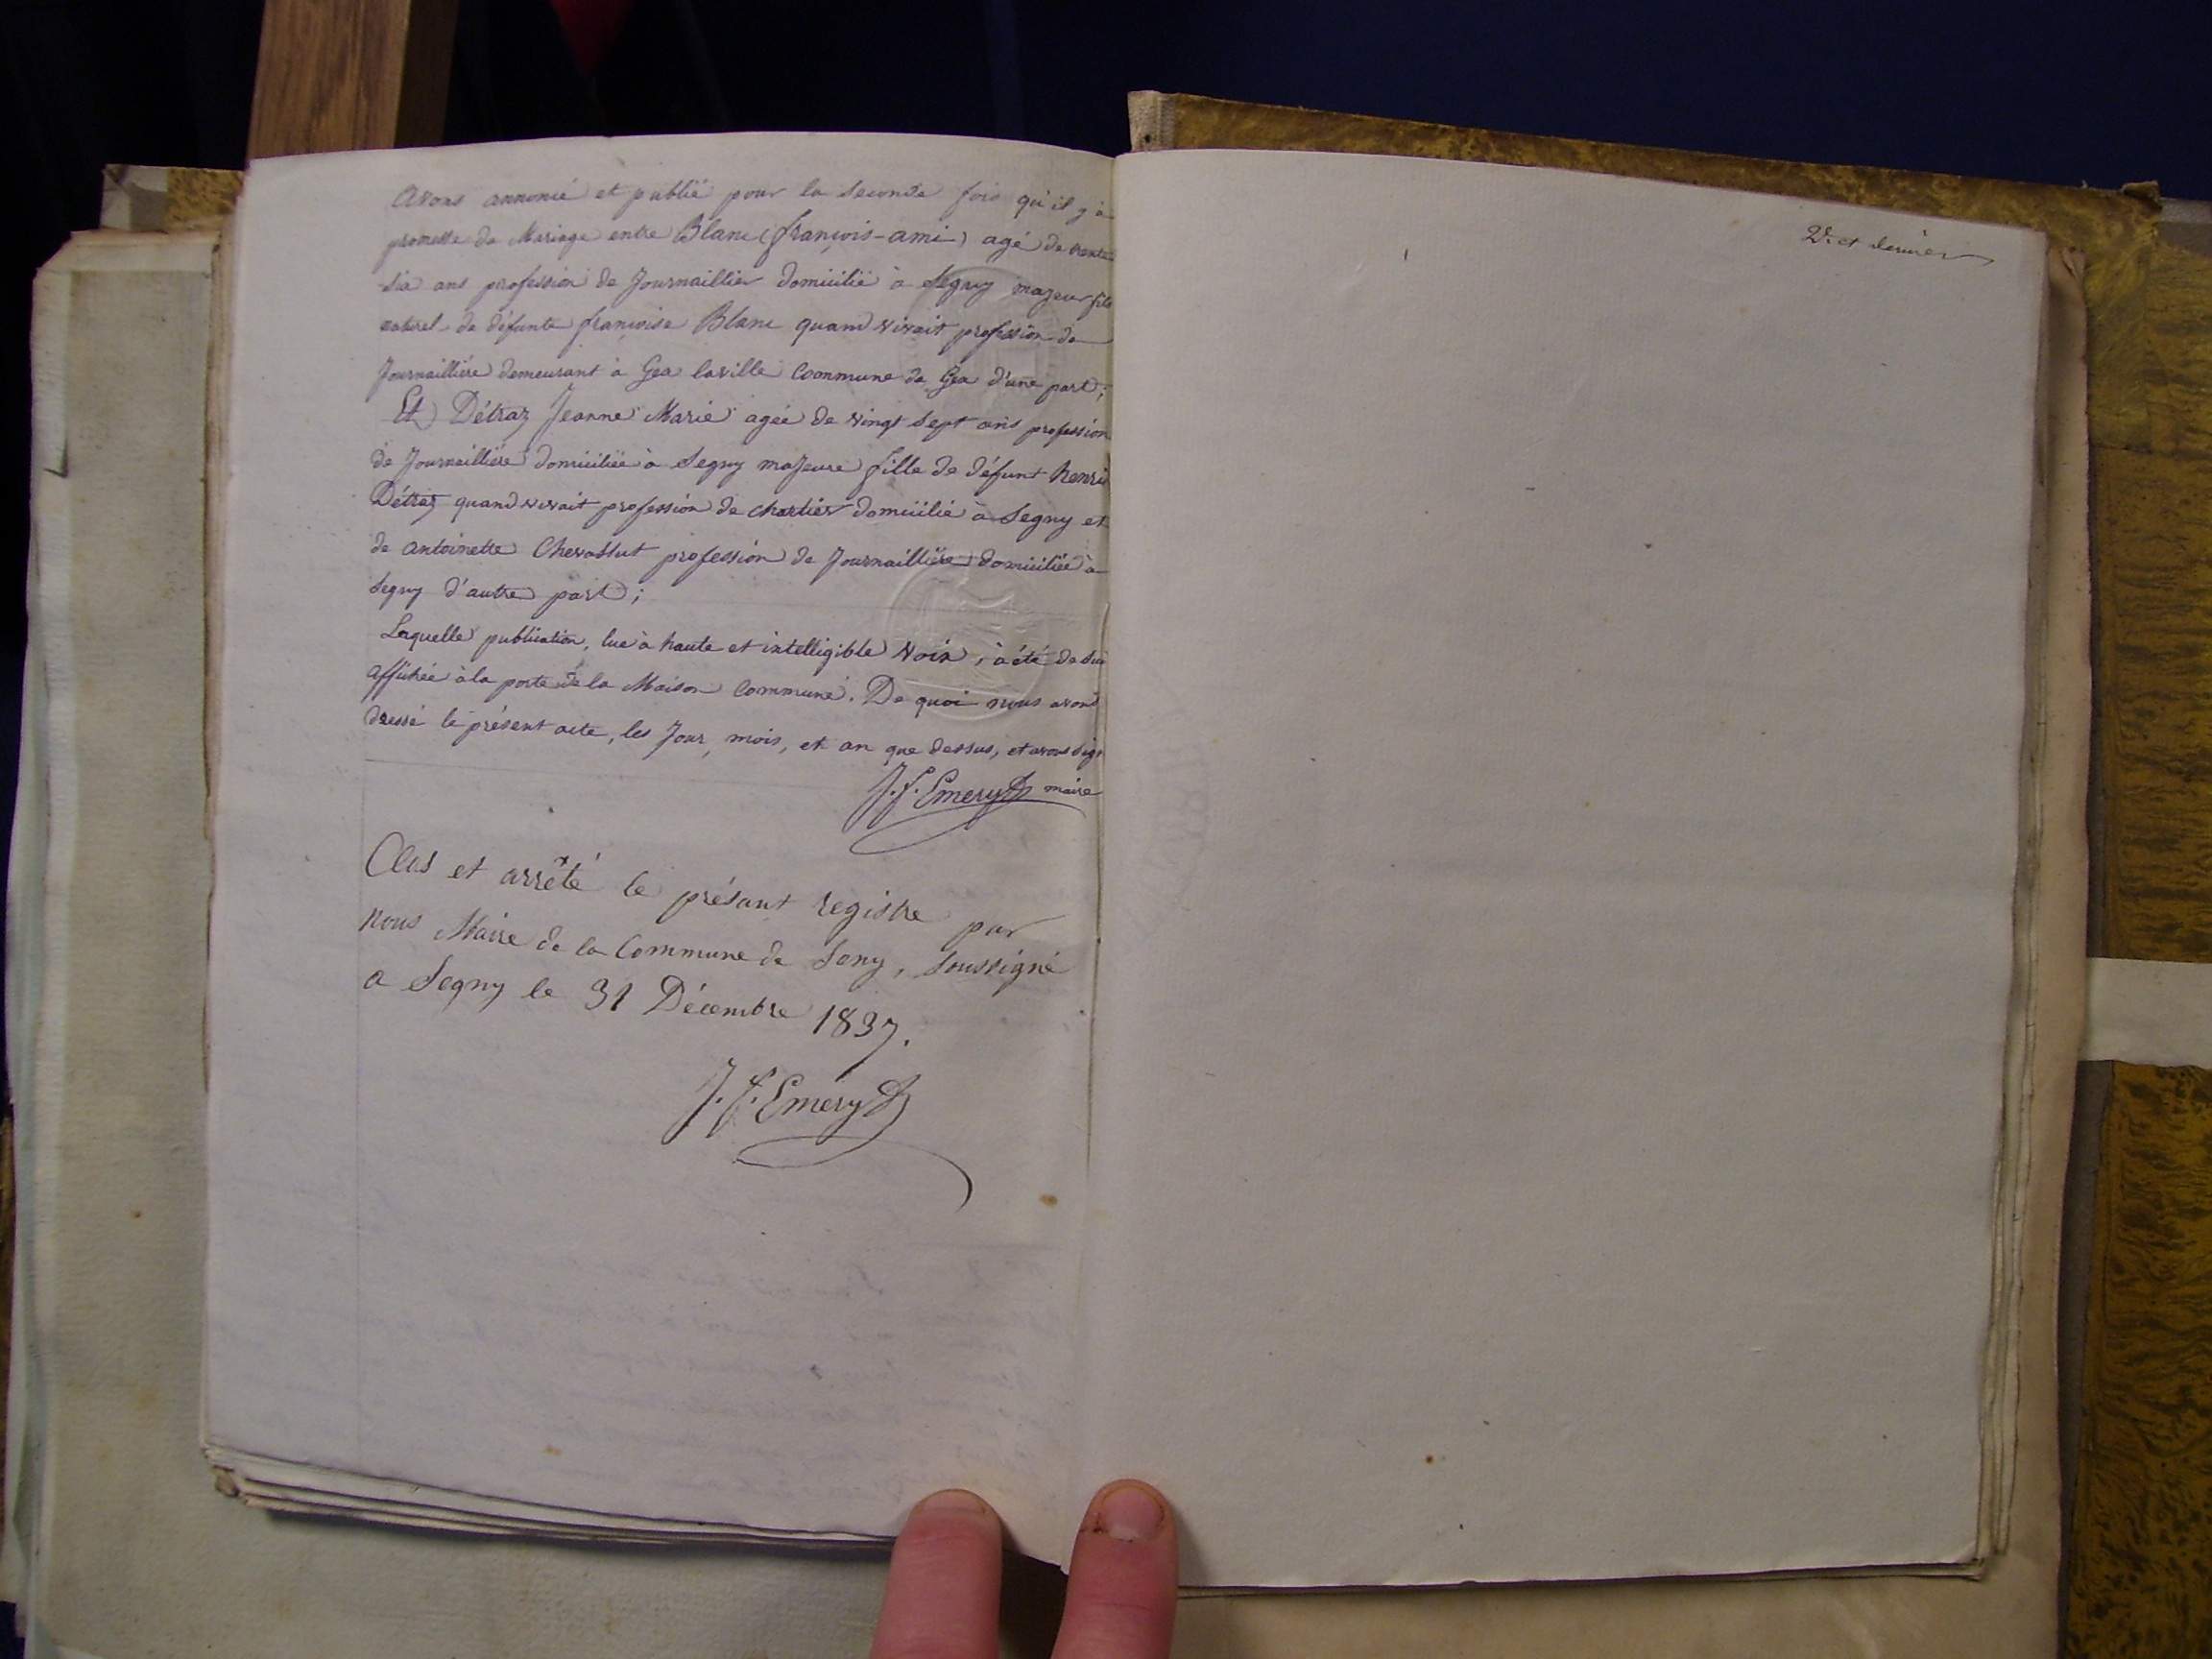 avons annoncé et publié pour la seconde fois qu'il y à
promesse de Mariage entre Blanc (françois-ami) agé de trente
six ans profession de Journaillier domicilié à Segny majeur fils
naturel de défunte françoise Blanc quand vivait profession de
Journaillière demeurant à Gex la ville Commune de Gex d'une part;
Et Détraz Jeanne Marie agée de vingt sept ans profession
de Journaillière domiciliée à Segny majeure fille de défunt henri
Détraz quand vivait profession de chartier domicilié à Segny et
de antoinette Chevassut profession de Journaillière domiciliée à
Segny d'autre part;
Laquelle publication, lue à haute et intelligible voix, à été de suite
affichée à la porte de la Maison Commune. De quoi nous avons
dressé le présent acte, les Jour, mois, et an que dessus, et avons sign
J.f. Emery maire
Clos et arrêté le présant registre par
nous Maire de la Commune de Segny, soussigné
a Segny le 31 Décembre 1837.
J.f. Emery
2e et dernier